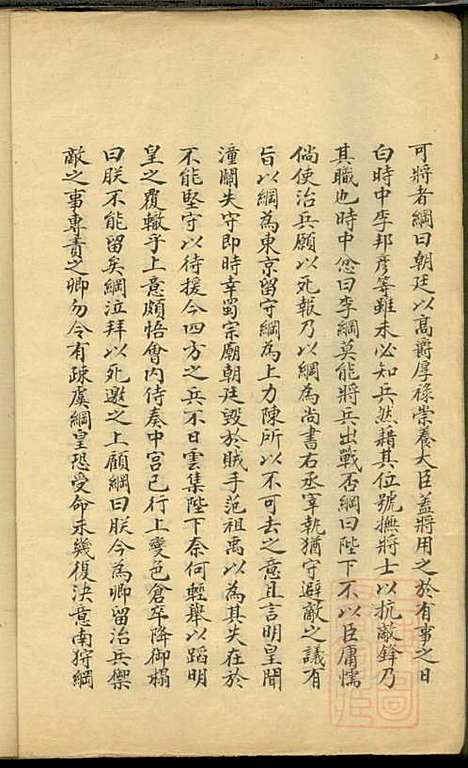 可將者綱曰朝廷以高爵厚祿崇養大臣蓋將用之於有事之日
白時中李邦彥等雖未必知兵然藉其位號撫將士以抗敵鋒乃
其職也時中忿曰李綱莫能將兵出戰否綱曰陛下不以臣庸懦
倘使治兵願以死報乃以綱為尚書右丞宰執猶守避敵之議有
旨以綱為東京留守綱為上力陳所以不可去之意且言明皇聞
潼關失守即時幸蜀宗廟朝廷毀於賊手范祖禹以為其失在於
不能堅守以待援今四方之兵不日雲集陛下奈何輕舉以蹈明
皇之覆轍乎上意頗悟會內侍奏中宮已行上變色倉卒降御榻
曰朕不能留矣綱泣拜以死邀之上顧綱曰朕今為卿留治兵禦
敵之事專責之卿勿令有疎虞綱皇恐受命未幾復決意南狩綱